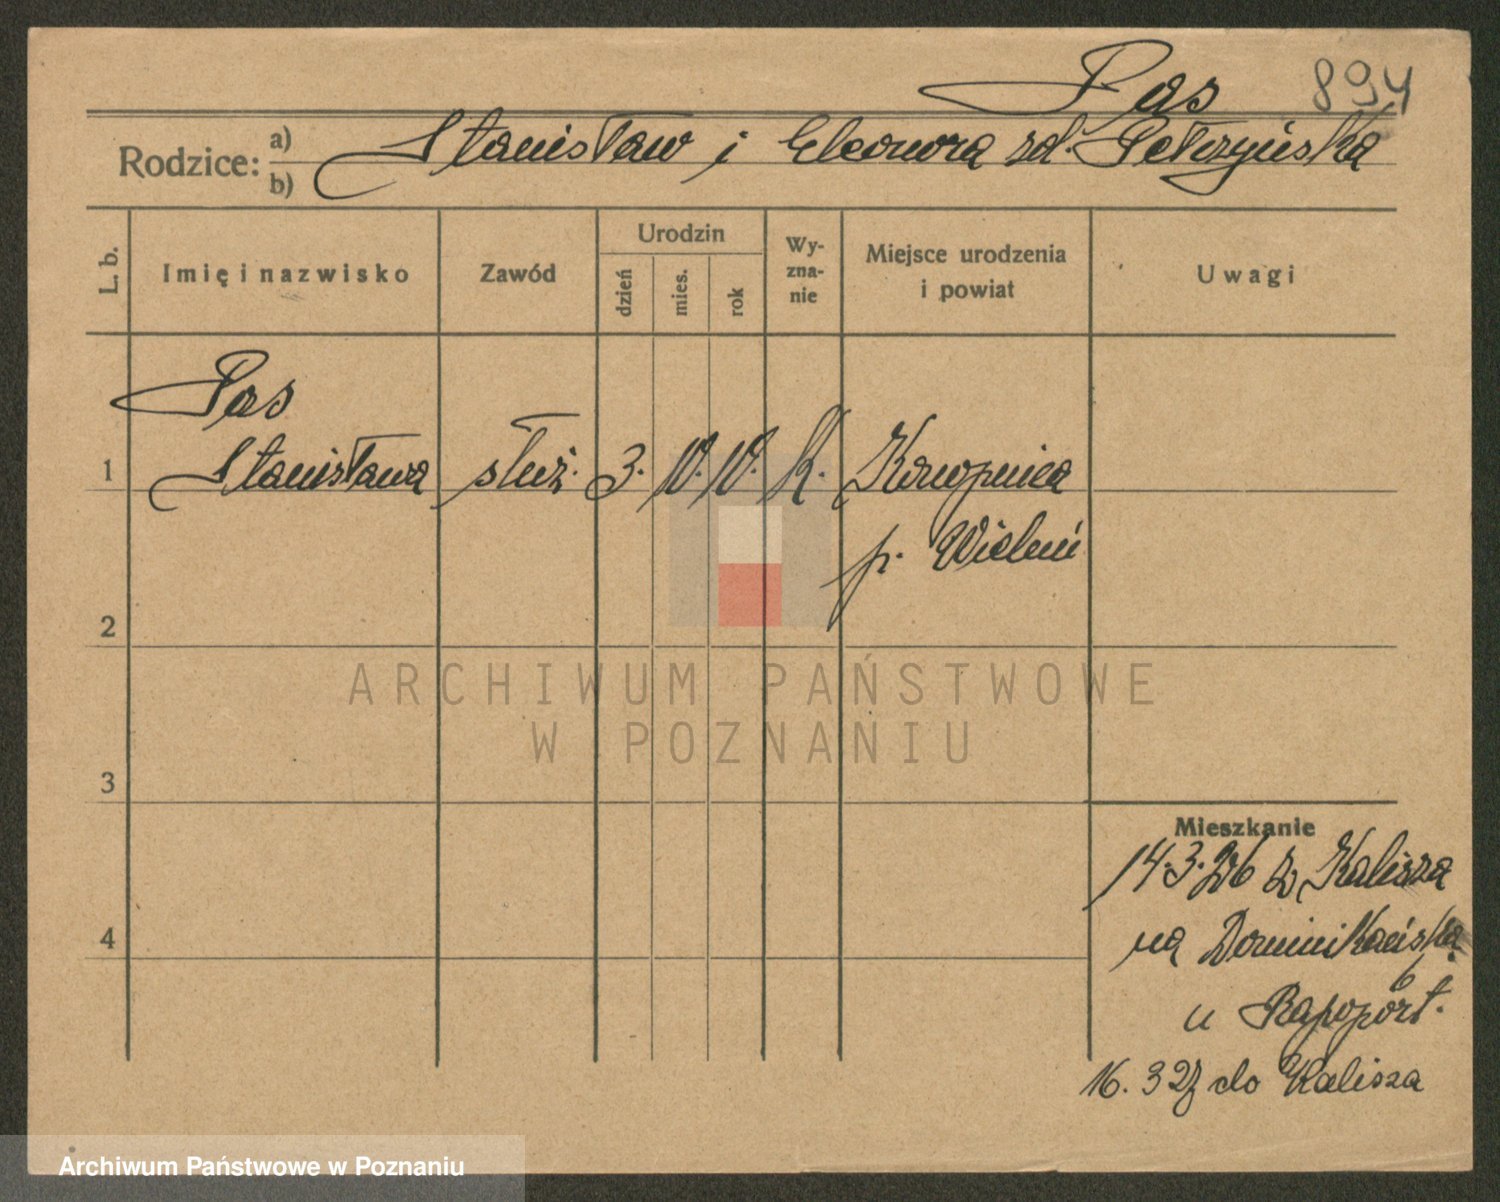 Pas 894
Rodzice: a) Stanisław i Eleonora zd. Pełczyńska
b)
L. b. Imię i nazwisko Zawód Urodzin dzień mies. rok Wy-zna-nie Miejsce urodzenia i powiat Uwagi
Pas
1 Stanisława służ. 3. 10. 10. k. Konopnica
p. Wieluń
2
ARCHIWUM PAŃSTWOWE
W POZNANIU
3
Mieszkanie
14.3.26 z Kalisza
4 na Dominikańska
6
u Rapoport.
16. 3 27 do Kalisza
Archiwum Państwowe w Poznaniu